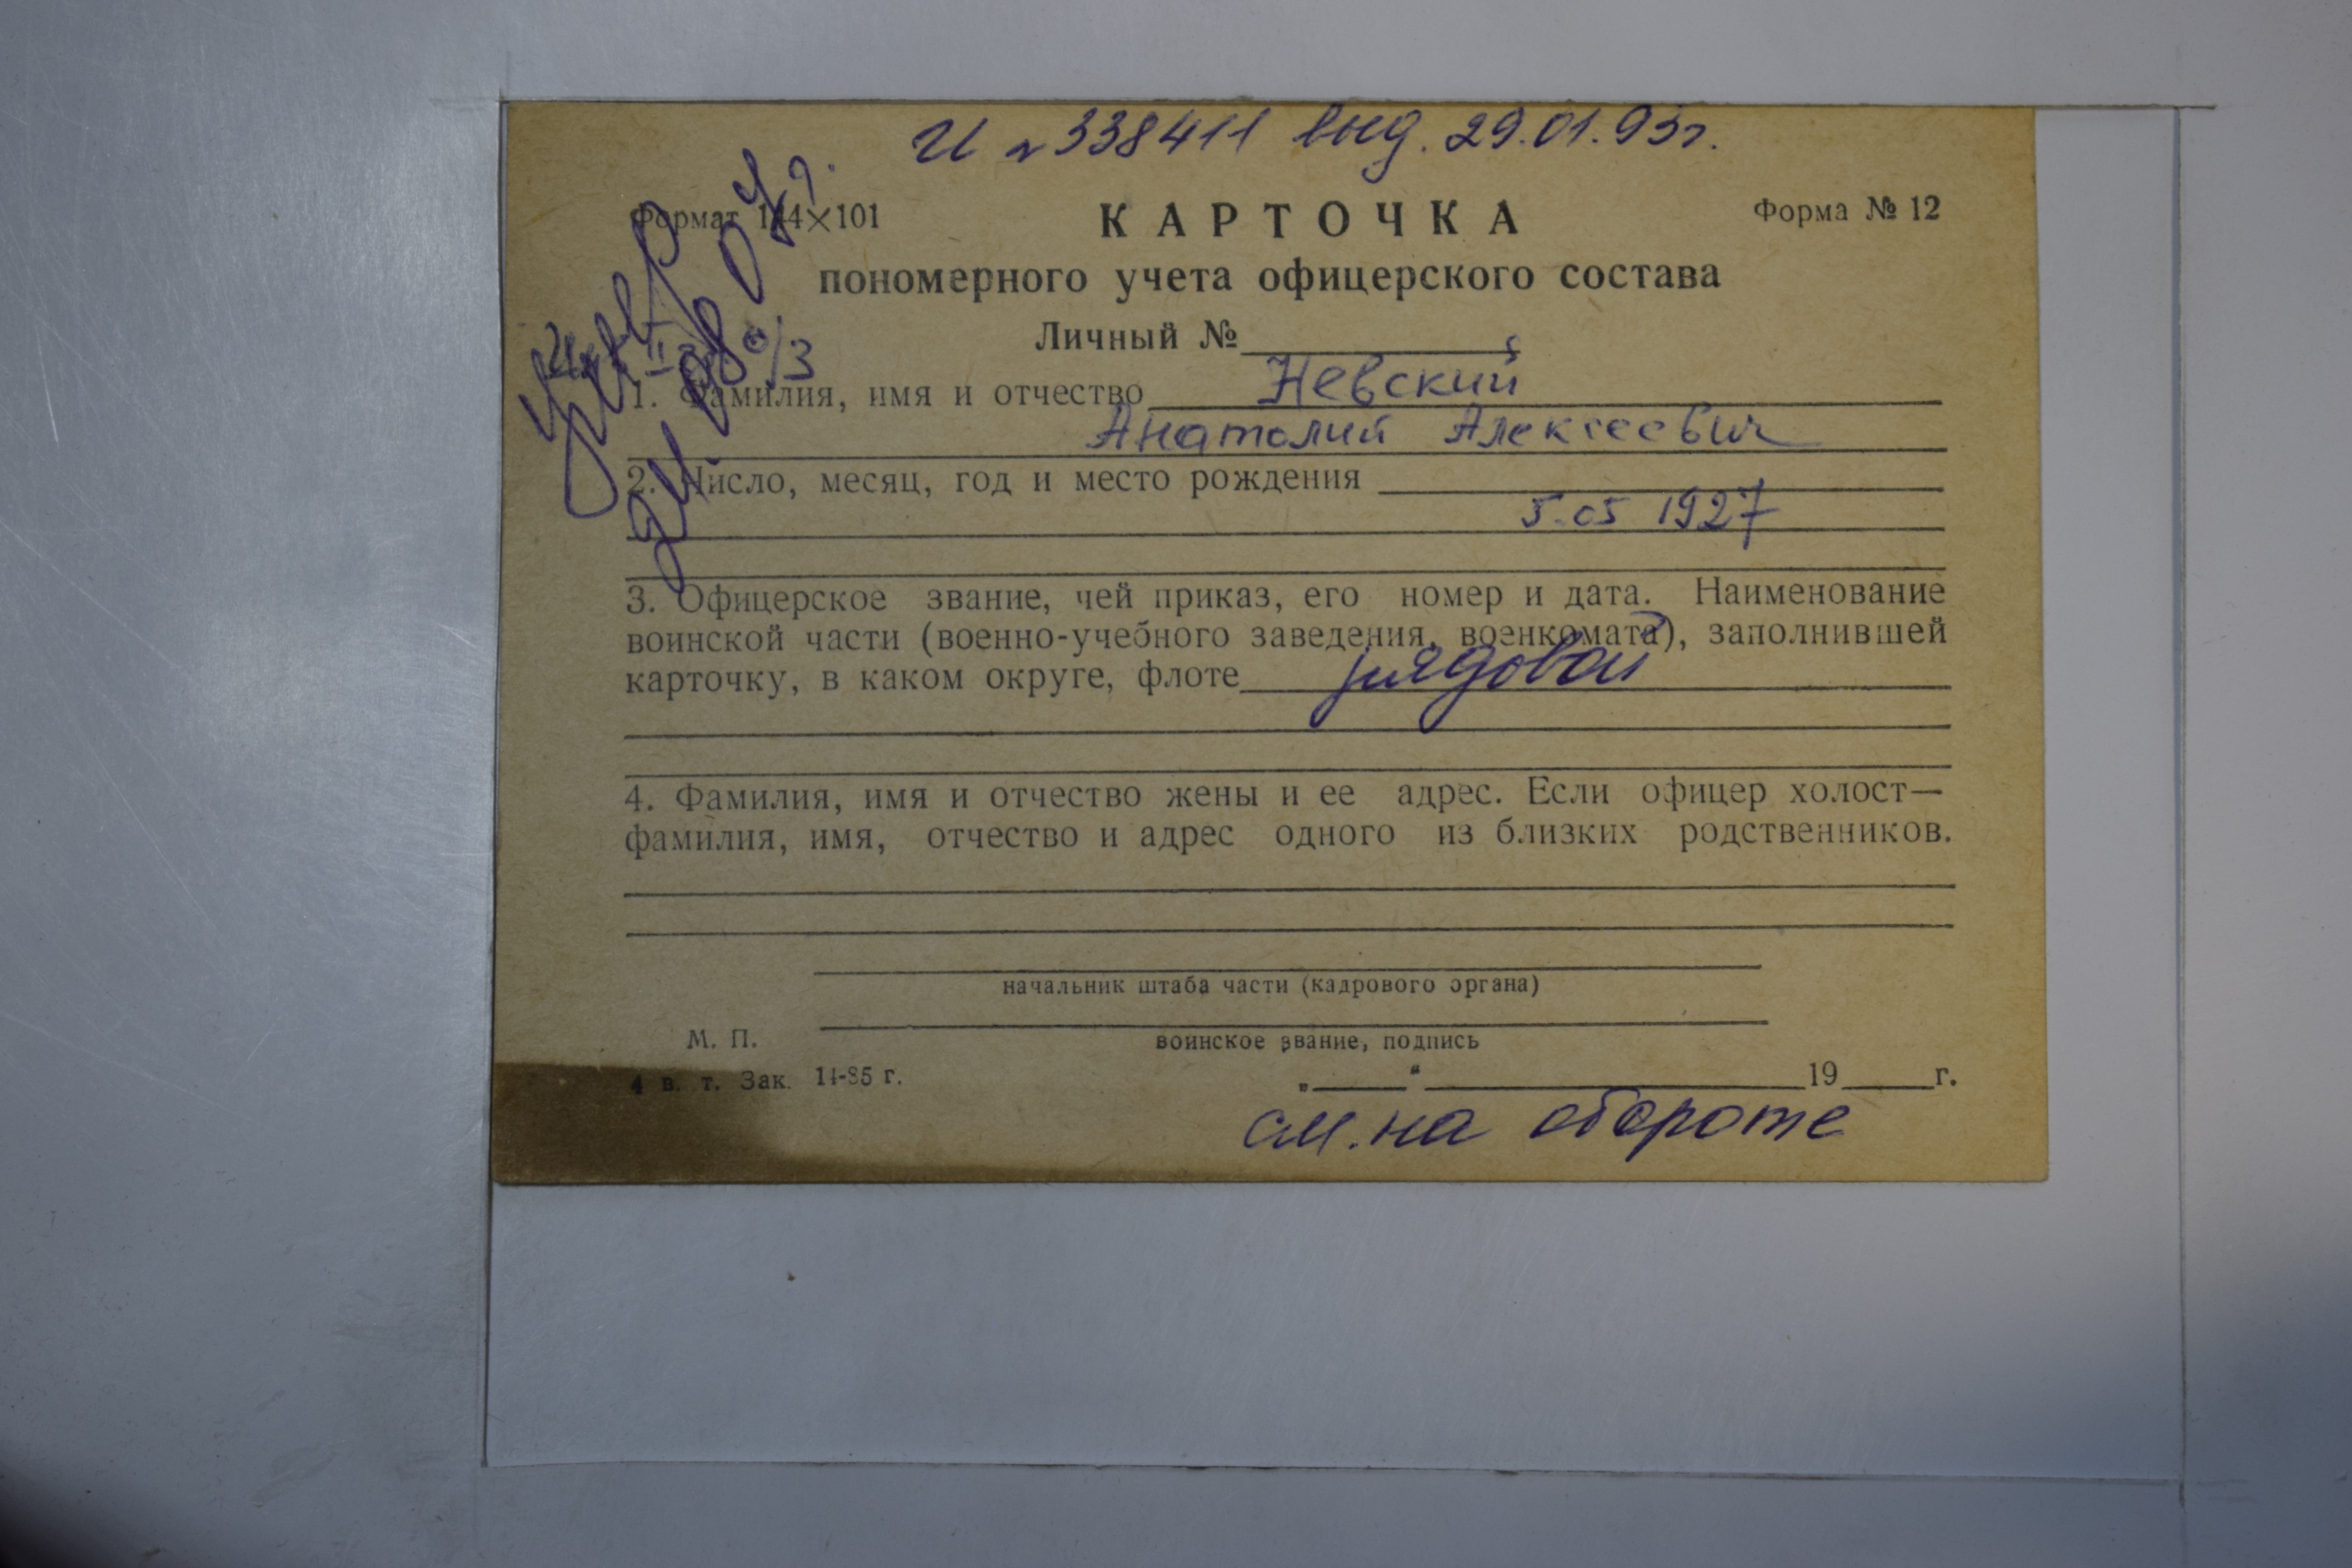 И №338411 выд. 29.01.93г.
Формат 144×101
КАРТОЧКА
Форма № 12
пономерного учета офицерского состава
Личный №
1. Фамилия, имя и отчество Невский
Анатолий Алексеевич
2. Число, месяц, год и место рождения
5.05 1927
3. Офицерское звание, чей приказ, его номер и дата. Наименование
воинской части (военно-учебного заведения, военкомата), заполнившей
карточку, в каком округе, флоте рядовой
4. Фамилия, имя и отчество жены и ее адрес. Если офицер холост—
фамилия, имя, отчество и адрес одного из близких родственников.
начальник штаба части (кадрового органа)
М. П.
воинское звание, подпись
4 в. т. Зак. 14-85 г.
„ “ 19 г.
см. на обороте